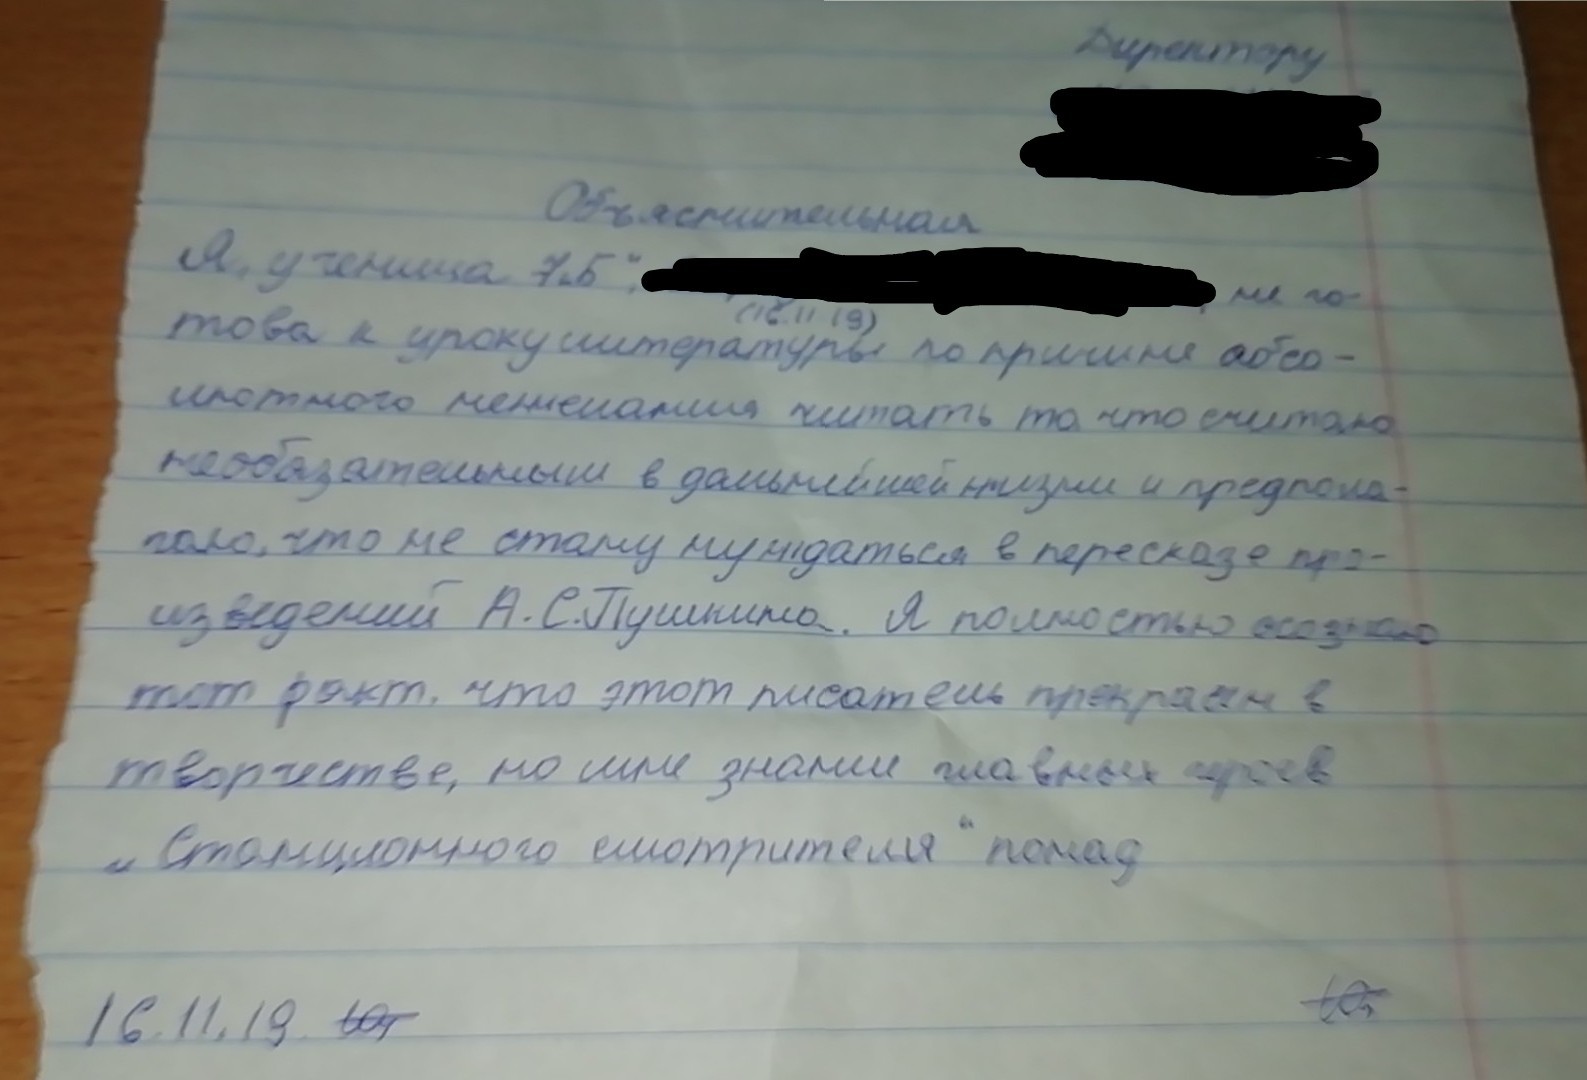 Директору
Объяснительная
Я, ученица 7„Б“, не го-
(16.11.19)
това к уроку литературы по причине абсо-
лютного нежелания читать то, что считаю
необязательным в дальнейшей жизни и предпола-
гаю, что не стану нуждаться в пересказе про-
изведений А.С.Пушкина. Я полностью осознаю
тот факт, что этот писатель прекрасен в
творчестве, но мне знание главных героев
„Станционного смотрителя“ понад
16.11.19